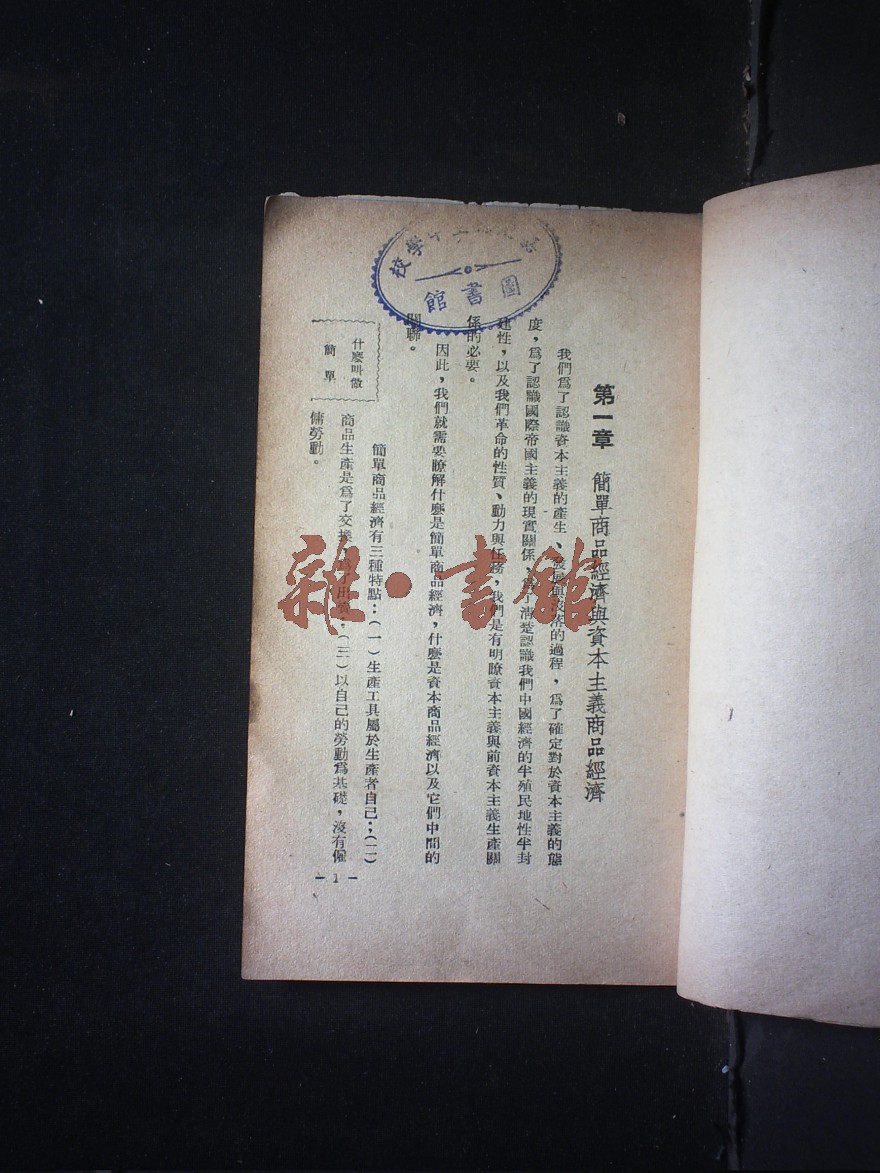 第一章　簡單商品經濟與資本主義商品經濟
我們爲了認識資本主義的產生、發展與沒落的過程，爲了確定對於資本主義的態
度，爲了認識國際帝國主義的現實關係，爲了清楚認識我們中國經濟的半殖民地性半封
建性，以及我們革命的性質、動力與任務，我們是有明瞭資本主義與前資本主義生產關
係的必要。
因此，我們就需要瞭解什麼是簡單商品經濟，什麼是資本商品經濟以及它們中間的
關聯。
什麼叫做
簡單
簡單商品經濟有三種特點：（一）生產工具屬於生產者自己；（二）
商品生產是爲了交換，爲了出賣；（三）以自己的勞動爲基礎，沒有僱
傭勞動。
— 1 —
學校
圖書館
雜·書館